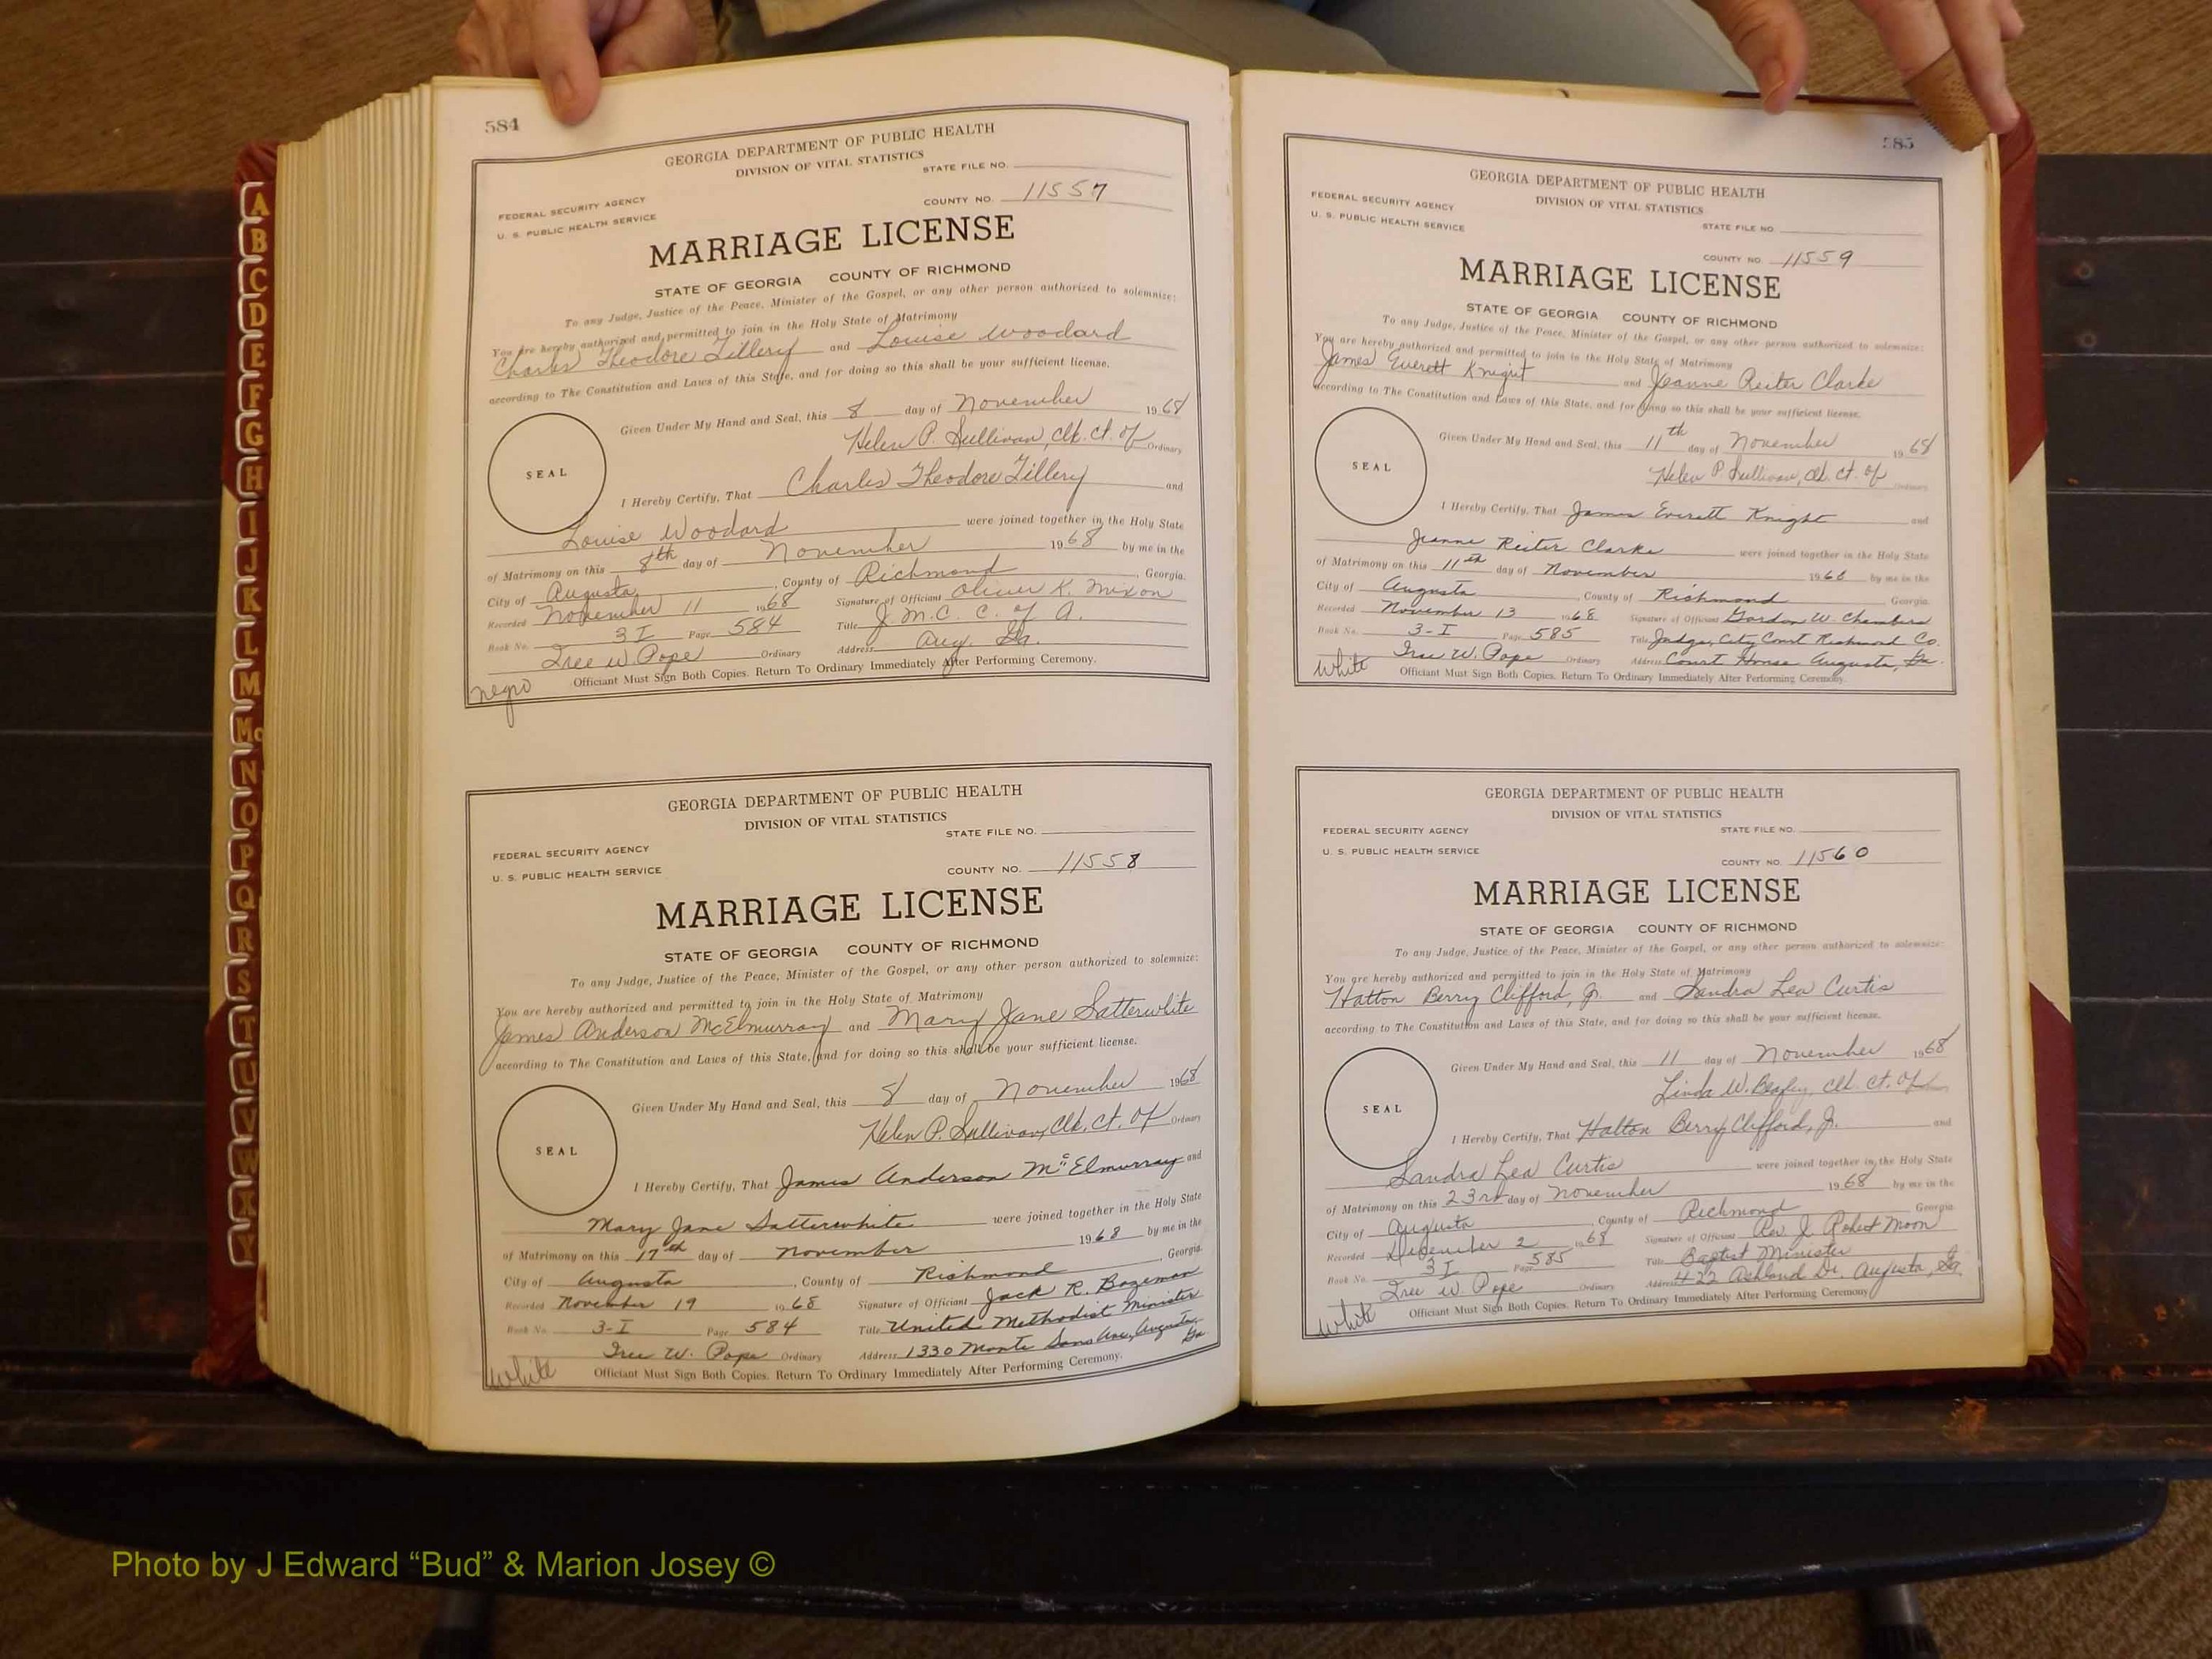 A
B
C
D
E
F
G
H
I
J
K
L
M
Mc
N
O
P
Q
R
S
T
U
V
W
X
Y
584
GEORGIA DEPARTMENT OF PUBLIC HEALTH
DIVISION OF VITAL STATISTICS
STATE FILE NO.
FEDERAL SECURITY AGENCY
U. S. PUBLIC HEALTH SERVICE
COUNTY NO. 11557
MARRIAGE LICENSE
STATE OF GEORGIA COUNTY OF RICHMOND
To any Judge, Justice of the Peace, Minister of the Gospel, or any other person authorized to solemnize:
You are hereby authorized and permitted to join in the Holy State of Matrimony
Charles Theodore Tillery and Louise Woodard
according to The Constitution and Laws of this State, and for doing so this shall be your sufficient license.
Given Under My Hand and Seal, this 8 day of November 1968
Helen P. Sullivan, Clk. Ct. of Ordinary
SEAL
I Hereby Certify, That Charles Theodore Tillery and
Louise Woodard were joined together in the Holy State
of Matrimony on this 8th day of November 1968 by me in the
City of Augusta, County of Richmond, Georgia.
Recorded November 11 1968 Signature of Officiant Oliver K. Mixon
Book No. 3 I Page 584 Title J. M. C. C. of A.
Tree W. Pope Ordinary Address Aug. Ga.
Officiant Must Sign Both Copies. Return To Ordinary Immediately After Performing Ceremony.
negro
GEORGIA DEPARTMENT OF PUBLIC HEALTH
DIVISION OF VITAL STATISTICS
STATE FILE NO.
FEDERAL SECURITY AGENCY
U. S. PUBLIC HEALTH SERVICE
COUNTY NO. 11558
MARRIAGE LICENSE
STATE OF GEORGIA COUNTY OF RICHMOND
To any Judge, Justice of the Peace, Minister of the Gospel, or any other person authorized to solemnize:
You are hereby authorized and permitted to join in the Holy State of Matrimony
James Anderson McElmurray and Mary Jane Satterwhite
according to The Constitution and Laws of this State, and for doing so this shall be your sufficient license.
Given Under My Hand and Seal, this 8 day of November 1968
Helen P. Sullivan, Clk. Ct. of Ordinary
SEAL
I Hereby Certify, That James Anderson McElmurray and
Mary Jane Satterwhite were joined together in the Holy State
of Matrimony on this 17th day of November 1968 by me in the
City of Augusta, County of Richmond, Georgia.
Recorded November 19 1968 Signature of Officiant Jack R. Bozeman
Book No. 3-I Page 584 Title United Methodist Minister
Tree W. Pope Ordinary Address 1330 Monte Sano Ave, Augusta, Ga
Officiant Must Sign Both Copies. Return To Ordinary Immediately After Performing Ceremony.
White
585
GEORGIA DEPARTMENT OF PUBLIC HEALTH
DIVISION OF VITAL STATISTICS
FEDERAL SECURITY AGENCY
U. S. PUBLIC HEALTH SERVICE
STATE FILE NO.
COUNTY NO. 11559
MARRIAGE LICENSE
STATE OF GEORGIA COUNTY OF RICHMOND
To any Judge, Justice of the Peace, Minister of the Gospel, or any other person authorized to solemnize:
You are hereby authorized and permitted to join in the Holy State of Matrimony
James Everett Knight and Jeanne Reiter Clarke
according to The Constitution and Laws of this State, and for doing so this shall be your sufficient license.
Given Under My Hand and Seal, this 11th day of November 1968
Helen P. Sullivan, Clk. Ct. of Ordinary
SEAL
I Hereby Certify, That James Everett Knight and
Jeanne Reiter Clarke were joined together in the Holy State
of Matrimony on this 11th day of November 1968 by me in the
City of Augusta, County of Richmond Georgia.
Recorded November 13 1968 Signature of Officiant Gordon W. Chambers
Book No. 3-I Page 585 Title Judge, City Court Richmond Co.
Tree W. Pope Ordinary Address Court House Augusta, Ga.
Officiant Must Sign Both Copies. Return To Ordinary Immediately After Performing Ceremony.
White
GEORGIA DEPARTMENT OF PUBLIC HEALTH
DIVISION OF VITAL STATISTICS
FEDERAL SECURITY AGENCY
STATE FILE NO.
U. S. PUBLIC HEALTH SERVICE
COUNTY NO. 11560
MARRIAGE LICENSE
STATE OF GEORGIA COUNTY OF RICHMOND
To any Judge, Justice of the Peace, Minister of the Gospel, or any other person authorized to solemnize:
You are hereby authorized and permitted to join in the Holy State of Matrimony
Hatton Berry Clifford, Jr. and Sandra Lea Curtis
according to The Constitution and Laws of this State, and for doing so this shall be your sufficient license.
Given Under My Hand and Seal, this 11 day of November 1968
Linda W. Beazley, Clk. Ct. of Ordinary
SEAL
I Hereby Certify, That Hatton Berry Clifford, Jr. and
Sandra Lea Curtis were joined together in the Holy State
of Matrimony on this 23rd day of November 1968 by me in the
City of Augusta, County of Richmond Georgia.
Recorded December 2 1968 Signature of Officiant Rev J. Robert Moon
Book No. 3 I Page 585 Title Baptist Minister
Tree W. Pope Ordinary Address 422 Ashland Dr. Augusta, Ga.
Officiant Must Sign Both Copies. Return To Ordinary Immediately After Performing Ceremony.
White
Photo by J Edward “Bud” & Marion Josey ©